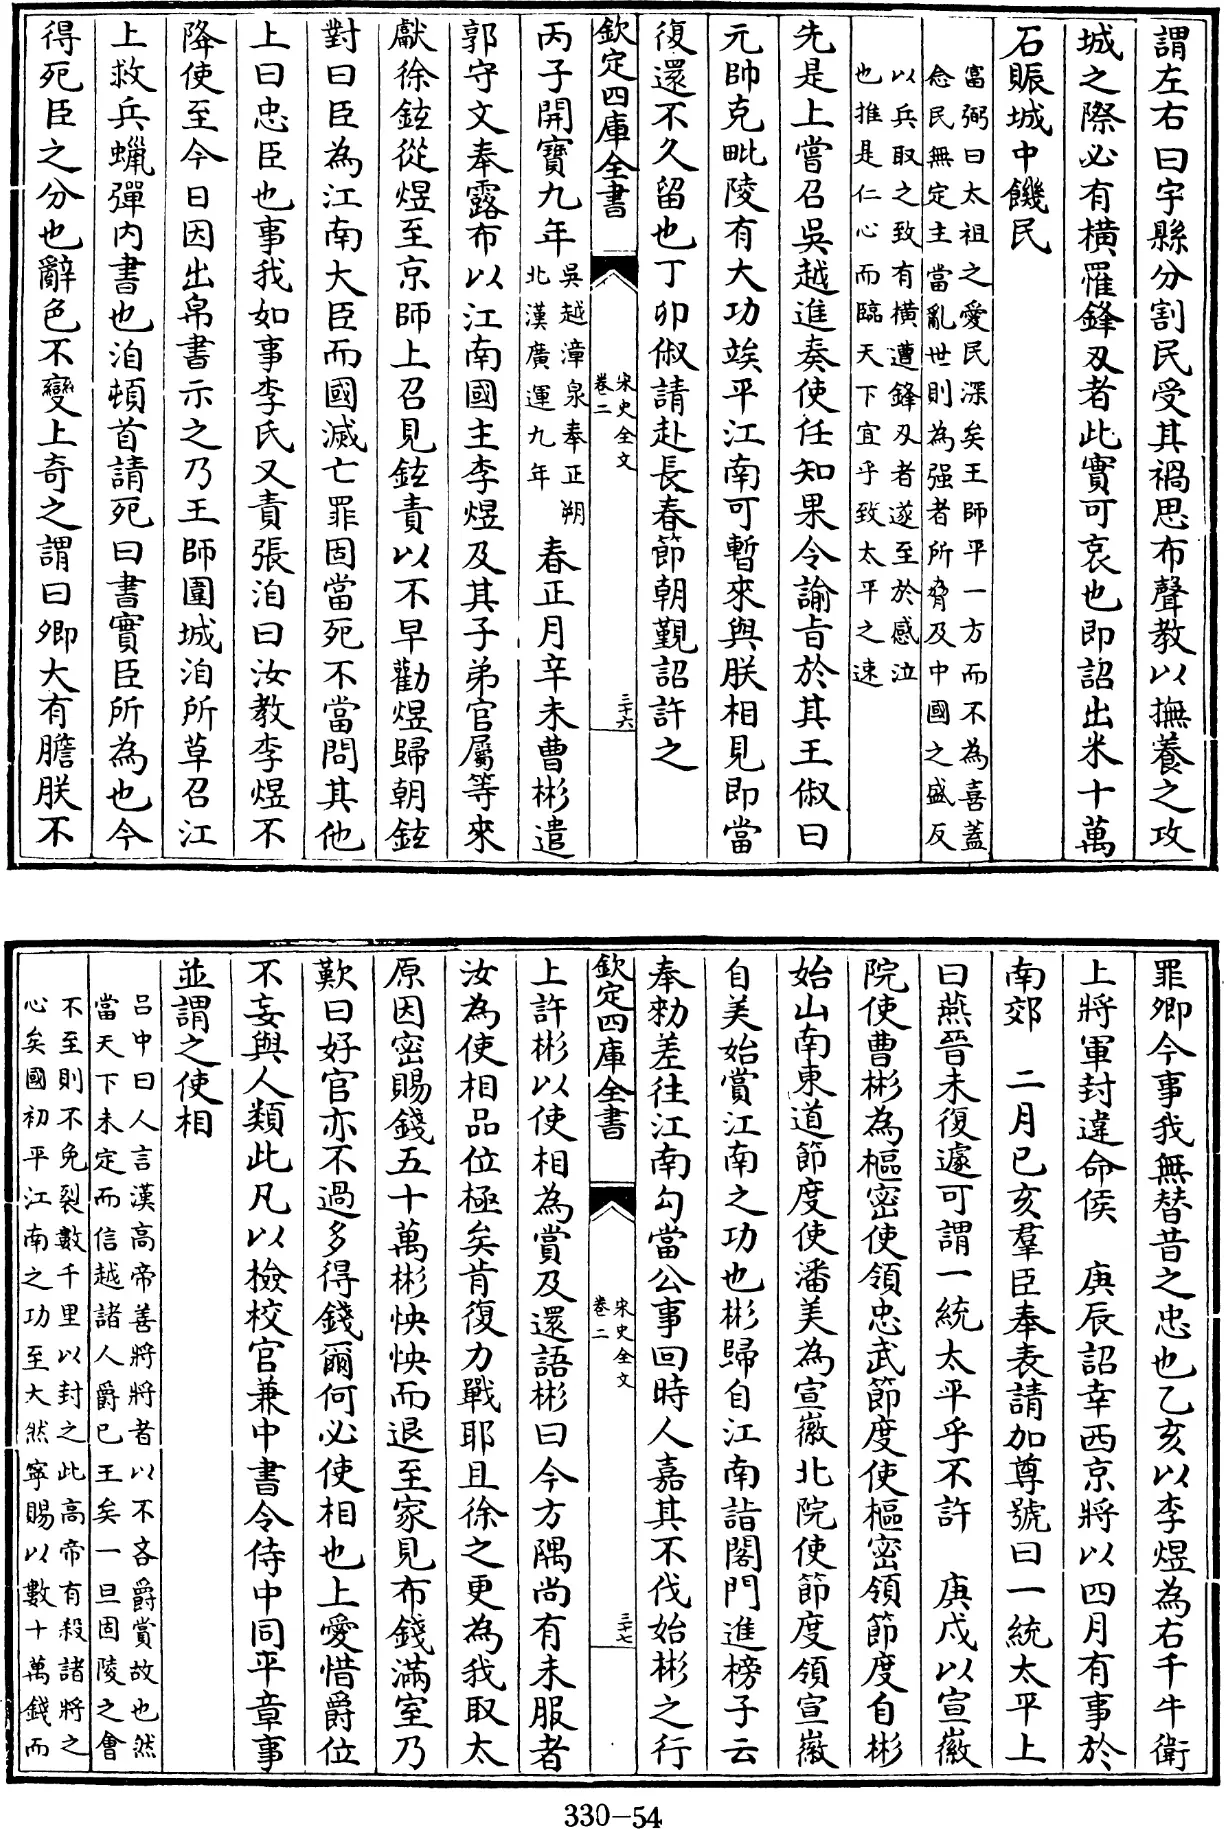 謂左右曰宇縣分割民受其禍思布聲教以撫養之攻
城之際必有橫罹鋒刃者此實可哀也即詔出米十萬
石賑城中饑民
富弼曰太祖之愛民深矣王師平一方而不為喜蓋
念民無定主當亂世則為强者所脅及中國之盛反
以兵取之致有橫遭鋒刃者遂至於感泣
也推是仁心而臨天下宜乎致太平之速
先是上嘗召吳越進奏使任知果令諭旨於其王俶曰
元帥克毗陵有大功竢平江南可暫來與朕相見即當
復還不久留也丁卯俶請赴長春節朝覲詔許之
欽定四庫全書
宋史全文
卷二
三十六
丙子開寶九年吳越漳泉奉正朔
北漢廣運九年
春正月辛未曹彬遣
郭守文奉露布以江南國主李煜及其子弟官屬等來
獻徐鉉從煜至京師上召見鉉責以不早勸煜歸朝鉉
對曰臣為江南大臣而國滅亡罪固當死不當問其他
上曰忠臣也事我如事李氏又責張洎曰汝教李煜不
降使至今日因出帛書示之乃王師圍城洎所草召江
上救兵蠟彈内書也洎頓首請死曰書實臣所為也今
得死臣之分也辭色不變上奇之謂曰卿大有膽朕不
罪卿今事我無替昔之忠也乙亥以李煜為右千牛衛
上將軍封違命侯　庚辰詔幸西京將以四月有事於
南郊　二月己亥羣臣奉表請加尊號曰一統太平上
曰燕晉未復遽可謂一統太平乎不許　庚戌以宣徽
院使曹彬為樞密使領忠武節度使樞密領節度自彬
始山南東道節度使潘美為宣徽北院使節度領宣徽
自美始賞江南之功也彬歸自江南詣閤門進榜子云
奉勑差往江南勾當公事回時人嘉其不伐始彬之行
欽定四庫全書
宋史全文
卷二
三十七
上許彬以使相為賞及還語彬曰今方隅尚有未服者
汝為使相品位極矣肯復力戰耶且徐之更為我取太
原因密賜錢五十萬彬怏怏而退至家見布錢滿室乃
歎曰好官亦不過多得錢爾何必使相也上愛惜爵位
不妄與人類此凡以檢校官兼中書令侍中同平章事
並謂之使相
吕中曰人言漢高帝善將將者以不吝爵賞故也然
當天下未定而信越諸人爵已王矣一旦固陵之會
不至則不免裂數千里以封之此高帝有殺諸將之
心矣國初平江南之功至大然寧賜以數十萬錢而
330-54